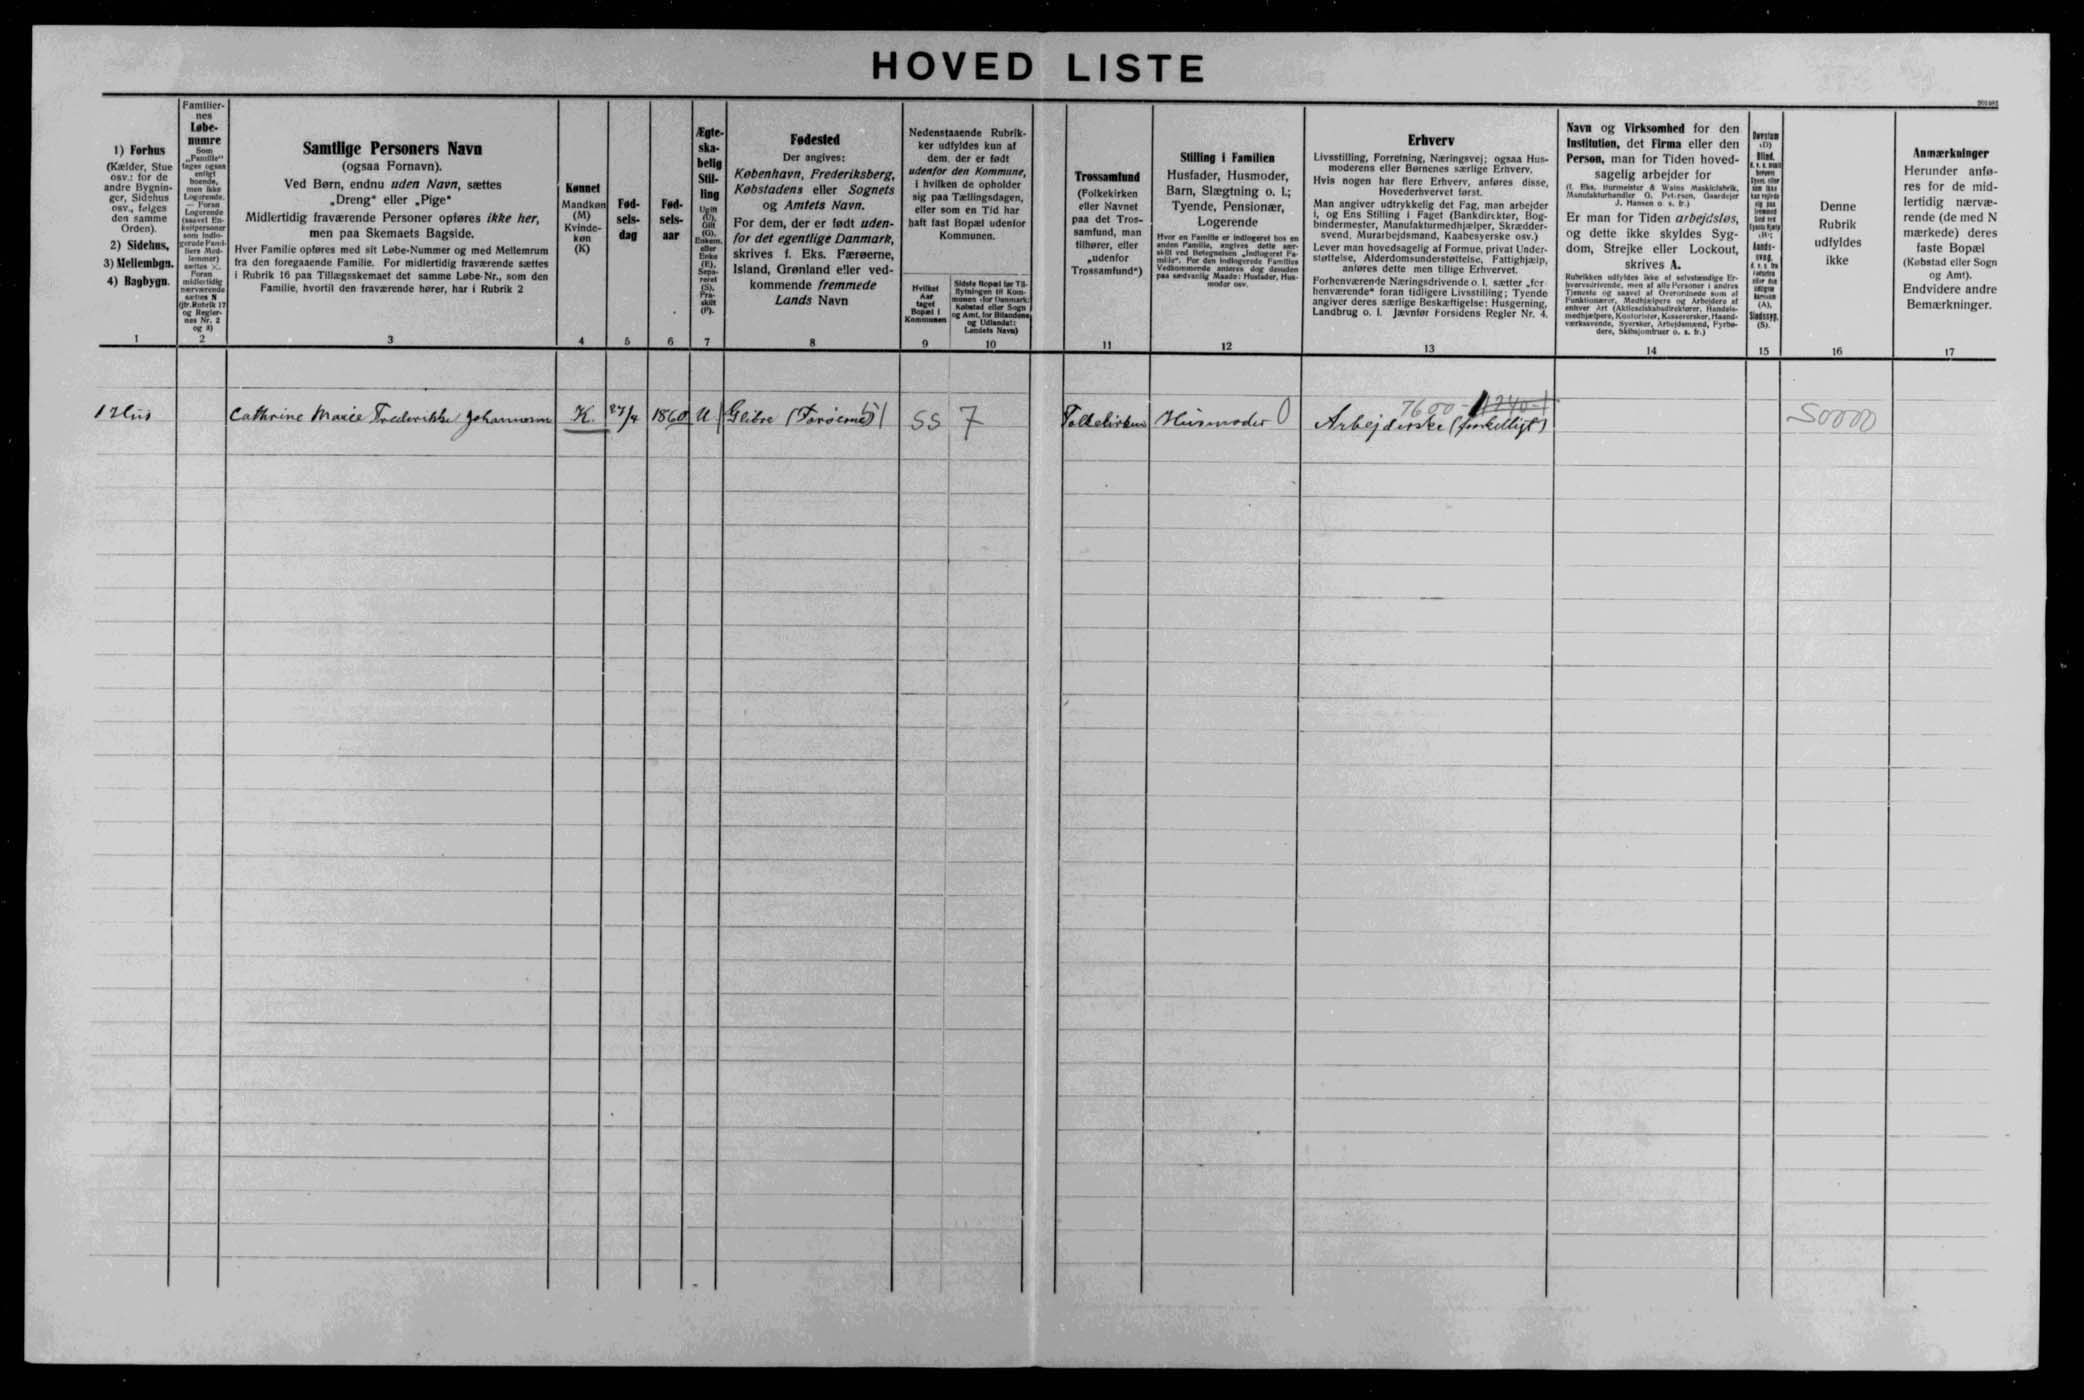 HOVED LISTE
201481
1) Forhus
(Kælder, Stue
osv.: for de
andre Bygnin-
ger, Sidehus
osv., følges
den samme
Orden).
2) Sidehus,
3) Mellembgn.
4) Bagbygn.
1
Familier-
nes
Løbe-
numre
Som
„Familie“
tages ogsaa
enligt
boende,
men ikke
Logerende.
— Foran
Logerende
(saavel En-
keltpersoner
som indlo-
gerede Famil-
liers Med-
lemmer)
sættes ×.
Foran
midlertidig
nærværende
sættes N
(jfr. Rubrik 17
og Regler-
nes Nr. 2
og 3)
2
Samtlige Personers Navn
(ogsaa Fornavn).
Ved Børn, endnu uden Navn, sættes
„Dreng“ eller „Pige“
Midlertidig fraværende Personer opføres ikke her,
men paa Skemaets Bagside.
Hver Familie opføres med sit Løbe-Nummer og med Mellemrum
fra den foregaaende Familie. For midlertidig fraværende sættes
i Rubrik 16 paa Tillægsskemaet det samme Løbe-Nr., som den
Familie, hvortil den fraværende hører, har i Rubrik 2
3
Kønnet
Mandkøn
(M)
Kvinde-
køn
(K)
4
Fød-
sels-
dag
5
Fød-
sels-
aar
6
Ægte-
ska-
belig
Stil-
ling
Ugift
(U),
Gift
(G),
Enkem.
eller
Enke
(E),
Sepa-
reret
(S),
Fra-
skilt
(F).
7
Fødested
Der angives:
København, Frederiksberg,
Købstadens eller Sognets
og Amtets Navn.
For dem, der er født uden-
for det egentlige Danmark,
skrives f. Eks. Færøerne,
Island, Grønland eller ved-
kommende fremmede
Lands Navn
8
Nedenstaaende Rubrik-
ker udfyldes kun af
dem, der er født
udenfor den Kommune,
i hvilken de opholder
sig paa Tællingsdagen,
eller som en Tid har
haft fast Bopæl udenfor
Kommunen.
Hvilket
Aar
taget
Bopæl i
Kommunen
9
Sidste Bopæl før Til-
flytningen til Kom-
munen (for Danmark:
Købstad eller Sogn
og Amt, for Bilandene
og Udlandet:
Landets Navn)
10
Trossamfund
(Folkekirken
eller Navnet
paa det Tros-
samfund, man
tilhører, eller
„udenfor
Trossamfund“)
11
Stilling i Familien
Husfader, Husmoder,
Barn, Slægtning o. l.;
Tyende, Pensionær,
Logerende
Hvor en Familie er indlogeret hos en
anden Familie, angives dette sær-
skilt ved Betegnelsen „Indlogeret Fa-
milie“. For den indlogerede Families
Vedkommende anføres dog desuden
paa sædvanlig Maade: Husfader, Hus-
moder osv.
12
Erhverv
Livsstilling, Forretning, Næringsvej; ogsaa Hus-
moderens eller Børnenes særlige Erhverv.
Hvis nogen har flere Erhverv, anføres disse,
Hovederhvervet først.
Man angiver udtrykkelig det Fag, man arbejder
i, og Ens Stilling i Faget (Bankdirektør, Bog-
bindermester, Manufakturmedhjælper, Skrædder-
svend, Murarbejdsmand, Kaabesyerske osv.)
Lever man hovedsagelig af Formue, privat Under-
støttelse, Alderdomsunderstøttelse, Fattighjælp,
anføres dette men tillige Erhvervet.
Forhenværende Næringsdrivende o. l. sætter „for-
henværende“ foran tidligere Livsstilling; Tyende
angiver deres særlige Beskæftigelse: Husgerning,
Landbrug o. l. Jævnfør Forsidens Regler Nr. 4.
13
Navn og Virksomhed for den
Institution, det Firma eller den
Person, man for Tiden hoved-
sagelig arbejder for
(f. Eks. Burmeister & Wains Maskinfabrik,
Manufakturhandler G. Petersen, Gaardejer
J. Hansen o. s. fr.)
Er man for Tiden arbejdsløs,
og dette ikke skyldes Syg-
dom, Strejke eller Lockout,
skrives A.
Rubrikken udfyldes ikke af selvstændige Er-
hvervsdrivende, men af alle Personer i andres
Tjeneste og saavel af Overordnede som af
Funktionærer, Medhjælpere og Arbejdere af
enhver Art (Aktieselskabsdirektører, Handels-
medhjælpere, Kontorister, Kassererske, Haand-
værkssvende, Syersker, Arbejdsmænd, Fyrbø-
dere, Skibsjomfruer o. s. fr.)
14
Døvstum
(D)
Blind,
Aands-
svag,
(A),
Sindssyg.
(S).
15
Denne
Rubrik
udfyldes
ikke
16
Anmærkninger
Herunder anfø-
res for de mid-
lertidig nærvæ-
rende (de med N
mærkede) deres
faste Bopæl
(Købstad eller Sogn
og Amt).
Endvidere andre
Bemærkninger.
17
1 Hus Cathrine Marie Frederikke Johannesen K. 27/4 1860 U (Færøerne) 5 SS 7 Folkekirken Husmoder 0 7600- 1240-1 Arbejderske 50000